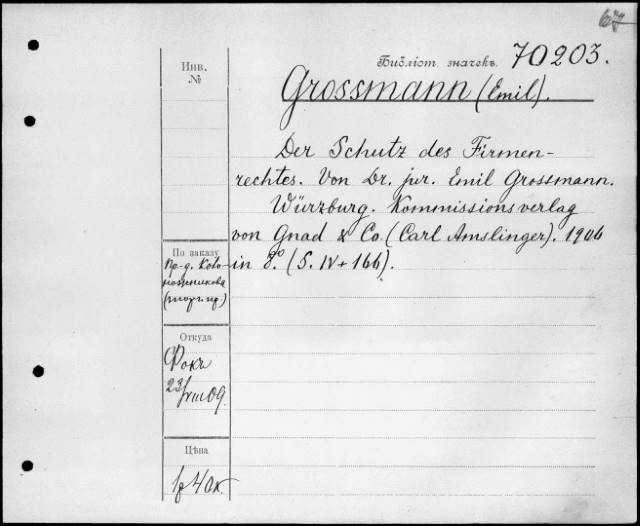 67
Библіот. значекъ 70203.
Инв.
№
Grossmann (Emil).
Der Schutz des Firmen-
rechtes. Von Dr. jur. Emil Grossmann.
Würzburg. Kommissionsverlag
von Gnad & Co. (Carl Amslinger). 1906
in 8º. (S. IV + 166).
По заказу
Пр-д.
(торг. пр)
Откуда
Фокъ
23/VIII 09.
Цѣна
1р 40к.